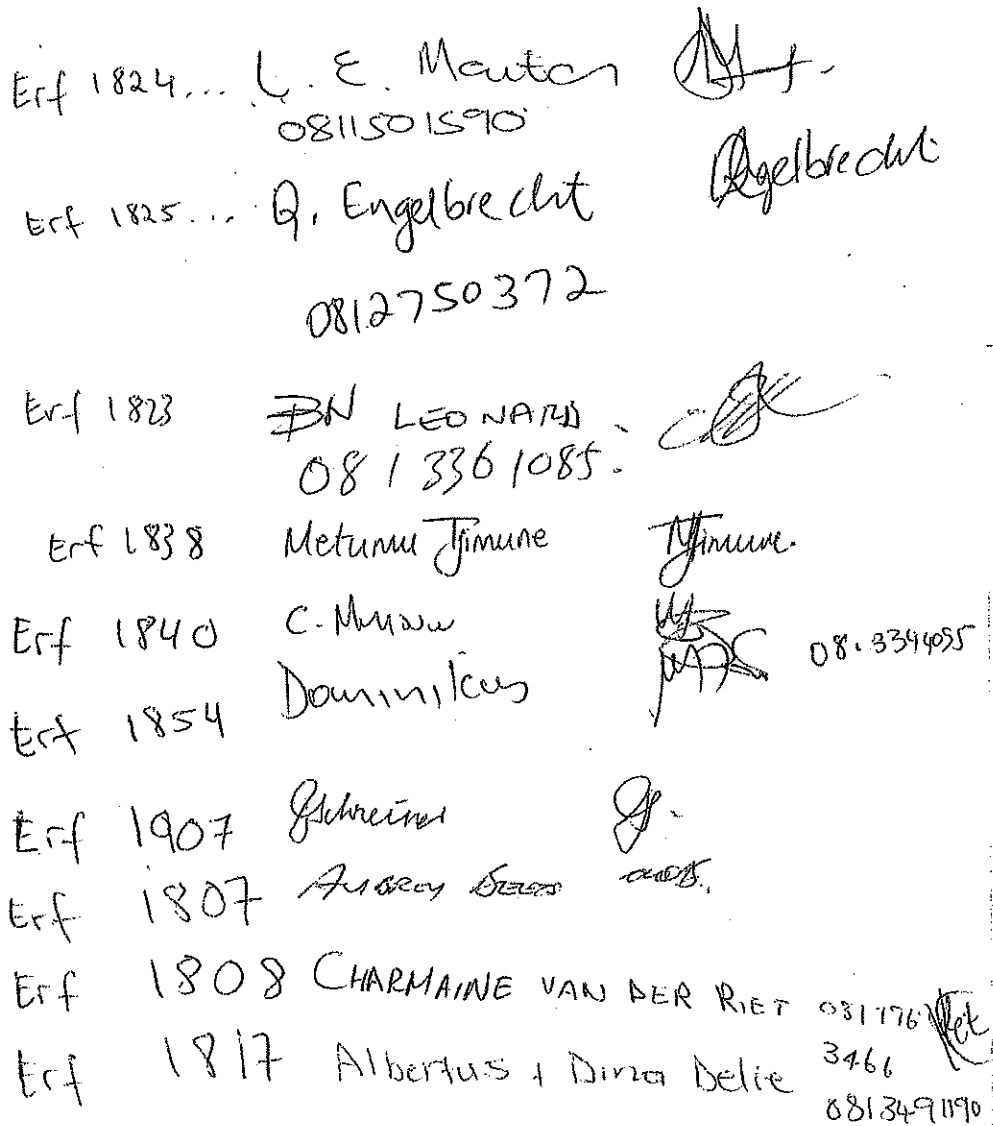 Erf 1824... L. E. Mouton
0811501590
Erf 1825... Q. Engelbrecht Engelbrecht
0812750372
Erf 1823 BN LEONARD.
081 3361085.
Erf 1838 Metumu Tjimune Tjimune.
Erf 1840 C.
Erf 1854 Dominikus
Erf 1907 Schreiner
Erf 1807 Aubrey
Erf 1808 CHARMAINE VAN DER RIET 081776
3466
Erf 1817 Albertus + Dirza Delie
0813491190